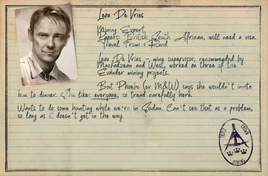 Leon De Vries
Mining Expert
Papers: British South African, will need a visa.
Travel from: Rand
Leon De Vries - mine supervisor, recommended by
MacFadzean and West, worked on three of the
Evander mining projects.
But Phoebe (ex M&W) says she wouldn't invite
him to dinner. She likes everyone, so tread carefully here.
Wants to do some hunting while we're in Sudan. Can't see that as a problem,
so long as it doesn't get in the way.